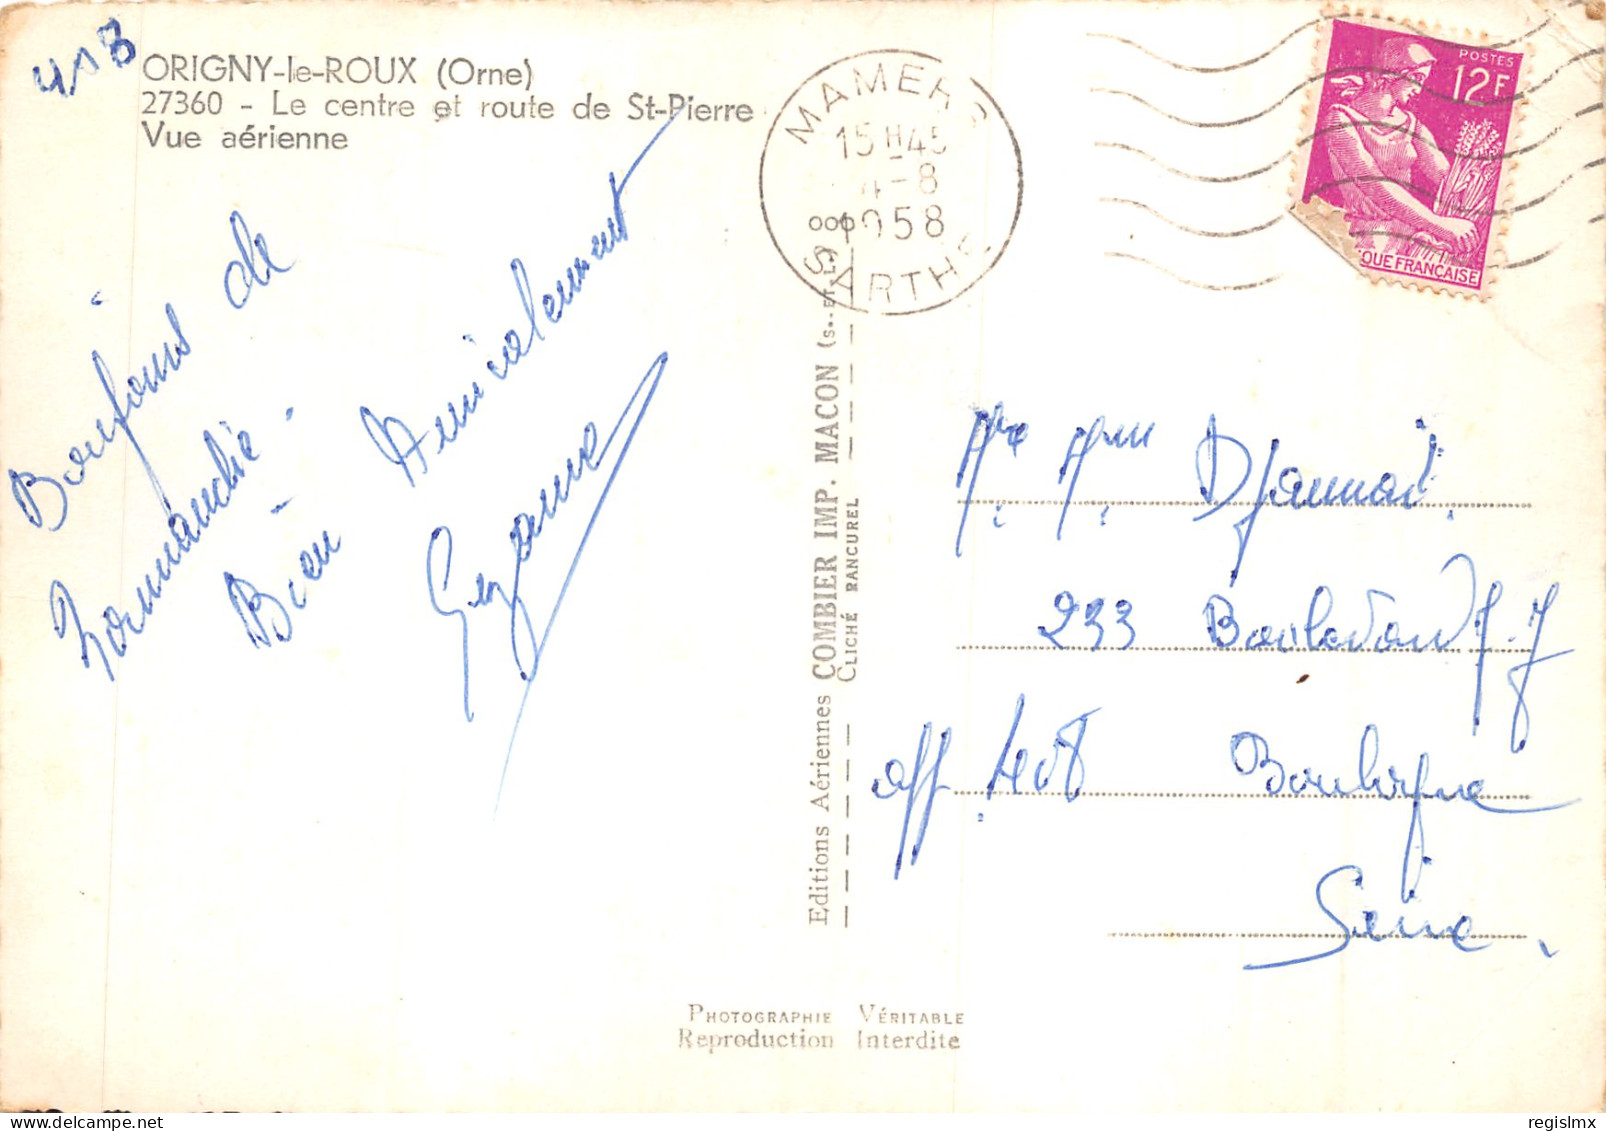 418
ORIGNY-le-ROUX (Orne)
27360 - Le centre et route de St-Pierre
Vue aérienne
Bonjours de
Normandie.
Bien Amicalement
MAMERS
15 H 45
4-8
1958
SARTHE
POSTES
12F
QUE FRANÇAISE
Editions Aériennes COMBIER IMP. MACON (S.-ET-L.)
CLICHÉ RANCUREL
Mr Mme Djannai
233 Boulevard J-J
aff 408 Boulogne
Seine
PHOTOGRAPHIE VÉRITABLE
Reproduction Interdite
regislmx